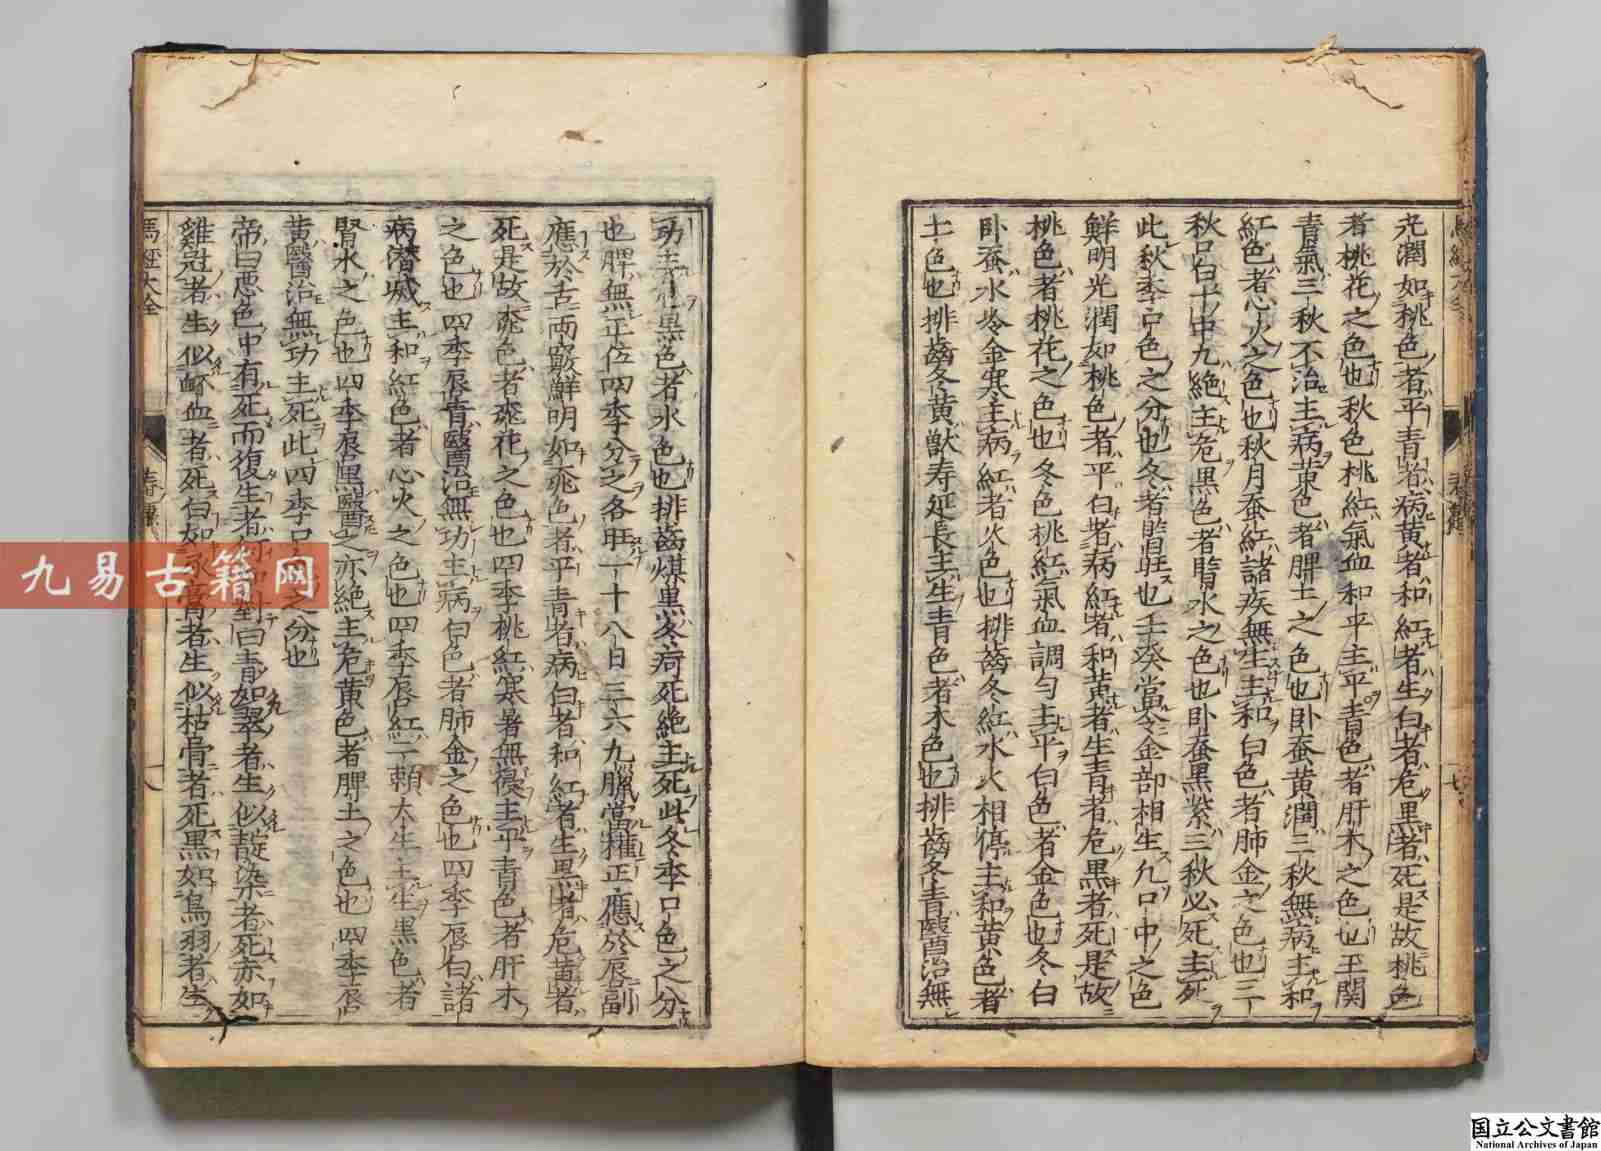 光潤如桃色者平青者病黄者和紅者生白者危黒者死是故桃色
者桃花之色也秋色桃紅氣血和平主平青色者肝木之色也玉関
青氣三秋不治主病黄色者脾土之色也卧蚕黄潤三秋無病主和
紅色者心火之色也秋月蚕紅諸疾無生主和白色者肺金之色也三
秋口白十中九絶主危黒色者腎水之色也卧蚕黒紫三秋必死主死
此秋季口色之分也冬者腎旺也壬癸當令金部相生凢口中之色
鮮明光潤如桃色者平白者病紅者和黄者生青者危黒者死是故
桃色者桃花之色也冬色桃紅氣血調勻主平白色者金色也冬白
卧蚕水冷金寒主病紅者火色也排齒冬紅水火相停主和黄色者
土色也排齒冬黄獣寿延長主生青色者木色也排齒冬青醫治無
功主危黒色者水色也排齒煤黒冬疴死絶主死此冬季口色之分
也脾無正位四季分之各旺一十八日三六九臘當權正應於唇副
應於舌両竅鮮明如桃色者平青者病白者和紅者生黒者危黄者
死是故桃色者桃花之色也四季桃紅寒暑無擾主平青色者肝木
之色也四季唇青醫治無功主病白色者肺金之色也四季唇白諸
病潜滅主和紅色者心火之色也四季唇紅一頼太生主生黒色者
腎水之色也四季唇黒醫之亦絶主危黄色者脾土之色也四季唇
黄醫治無功主死此四季口色之分也
帝曰悪色中有死而復生者何也對曰青如翠者生似靛染者死赤如
雞冠者生似衃血者死白如豕膏者生似枯骨者死黒如烏羽者生
馬經大全
春
九易古籍网
国立公文書館
National Archives of Japan